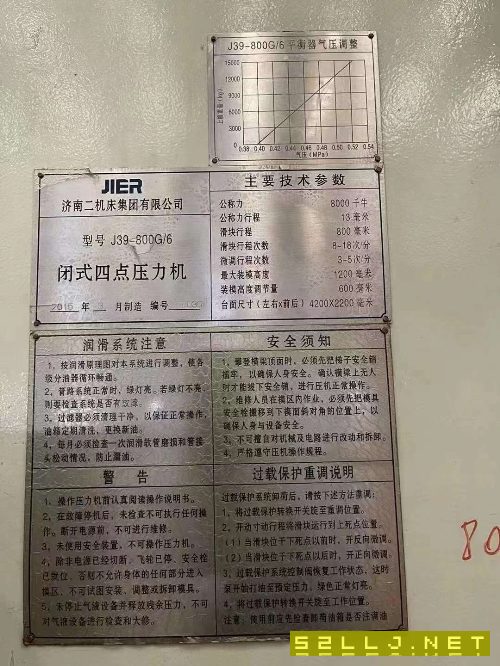 J39-800G/6平衡器气压调整
上模重量(kg)
15000
12000
9000
6000
3000
0
0.38 0.40 0.42 0.44 0.46 0.48 0.50 0.52 0.54
气压(MPa)
JIER
济南二机床集团有限公司
型号 J39-800G/6
闭式四点压力机
2015 年 月制造 编号
主要技术参数
公称力 8000千牛
公称力行程 13毫米
滑块行程 800毫米
滑块行程次数 8-18次/分
微调行程次数 3-5次/分
最大装模高度 1200毫米
装模高度调节量 600毫米
台面尺寸(左右x前后) 4200X2200毫米
润滑系统注意
1、按润滑原理图对本系统进行调整,使各
级分油器循环畅通。
2、管路系统正常时,绿灯亮。若绿灯不亮
则要检查系统是否有故障。
3、过滤器必须清理干净,以保证正常操作,
油箱定期清洗、更换新油。
4、每月必须检查一次润滑软管磨损和管接
头松动情况,防止漏油。
安全须知
1、攀登横梁顶面时,必须先把梯子安全销
插牢,以确保人身安全。确认横梁上无人
时才能拔下安全销,进行压机正常操作。
2、维修人员在模区内作业,必须先把模具
安全栓搬移到下模面斜对角的位置上,以
确保人身与设备安全。
3、不可擅自对机械及电路进行改动和拆卸。
4、严格遵守压机操作规程。
警告
1、操作压力机前认真阅读操作说明书。
2、在故障停机后,未检查不可执行任何操
作。断开电源前,不可进行维修。
3、未使用安全装置,不可操作压力机。
4、除非电源已经切断,飞轮已停、安全栓
已就位,否则不允许身体的任何部分进入
模区、不可试图安装、调整或拆卸模具。
5、未停止气液设备并释放残余压力,不可
对气液设备进行检查和大修。
过载保护重调说明
过载保护系统卸荷后,请按下述方法重调:
1、将过载保护转换开关旋至重调位置。
2、开动寸动行程将滑块运行到上死点位置。
(1)当滑块位于下死点以前时,开反向微调。
(2)当滑块位于下死点以后时,开正向微调。
3、过载保护系统控制阀恢复工作状态,这时
泵开始打油至预定压力,绿色正常灯亮。
4、将过载保护转换开关旋至工作位置。
注意:使用前应先检查卸荷油箱是否注满油
80
52LLJ.NET